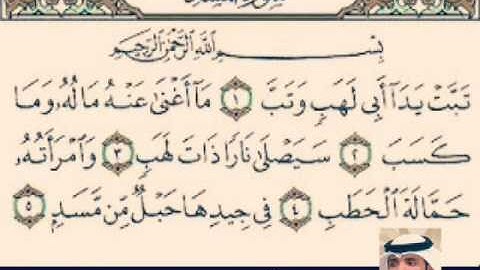 بِسْمِ اللَّهِ الرَّحْمَٰنِ الرَّحِيمِ
تَبَّتْ يَدَآ أَبِى لَهَبٍ وَتَبَّ ١ مَآ أَغْنَىٰ عَنْهُ مَالُهُۥ وَمَا
كَسَبَ ٢ سَيَصْلَىٰ نَارًا ذَاتَ لَهَبٍ ٣ وَٱمْرَأَتُهُۥ
حَمَّالَةَ ٱلْحَطَبِ ٤ فِى جِيدِهَا حَبْلٌ مِّن مَّسَدٍ ٥